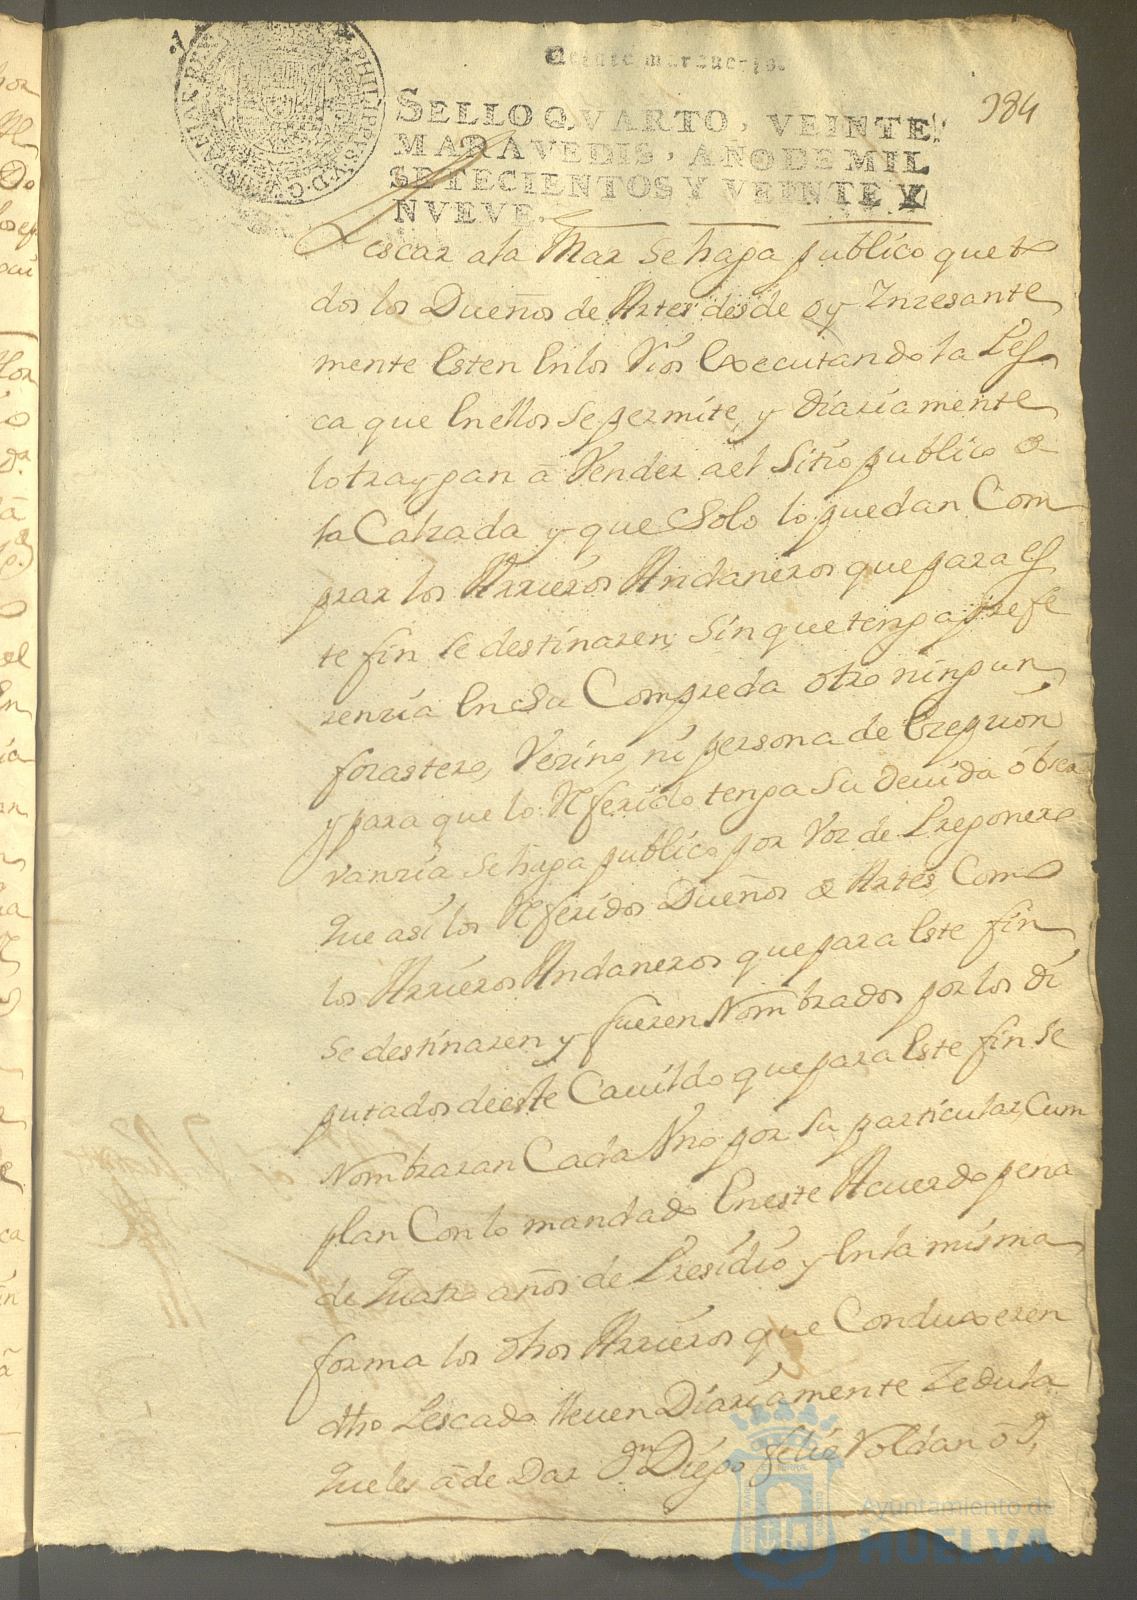 184
SELLO QVARTO, VEINTE
MARAVEDIS, AÑO DE MIL
SETECIENTOS Y VEINTE Y
NVEVE.
Pescar a la Mar Se haga publico que to
dos los Dueños de Artes desde oy Inzesante
mente Esten En los Rios Executando la Pes
ca que En ellos Se permite, y diariamente
lo traygan a Vender a el Sitio publico de
la Calzada y que Solo lo puedan Com
prar los Arrieros Andaneros que para es
te fin Se destinaren, Sin que tenga prefe
renzia En Su Compreda otro ningun
forastero, Vezino, ni persona de Exepzion
y para que lo Referido tenga Su devida obser
vanzia Se haga publico por Voz de Pregonero
que asi los Referidos Dueños de Artes Como
los Arrieros Andaneros que para Este fin
Se destinaren y fueren Nombrados por los di
putados de este Cavildo que para Este fin Se
Nombraran Cada Vno por Su particular, Cum
plan Con lo mandado En este Acuerdo pena
de quatro años de Presidio y En la misma
forma los dhos Arrieros que Conduxeren
dho Pescado lleven Diariamente Zedula
que les a de Dar Dn Diego Roldan o D.
Ayuntamiento de
HUELVA